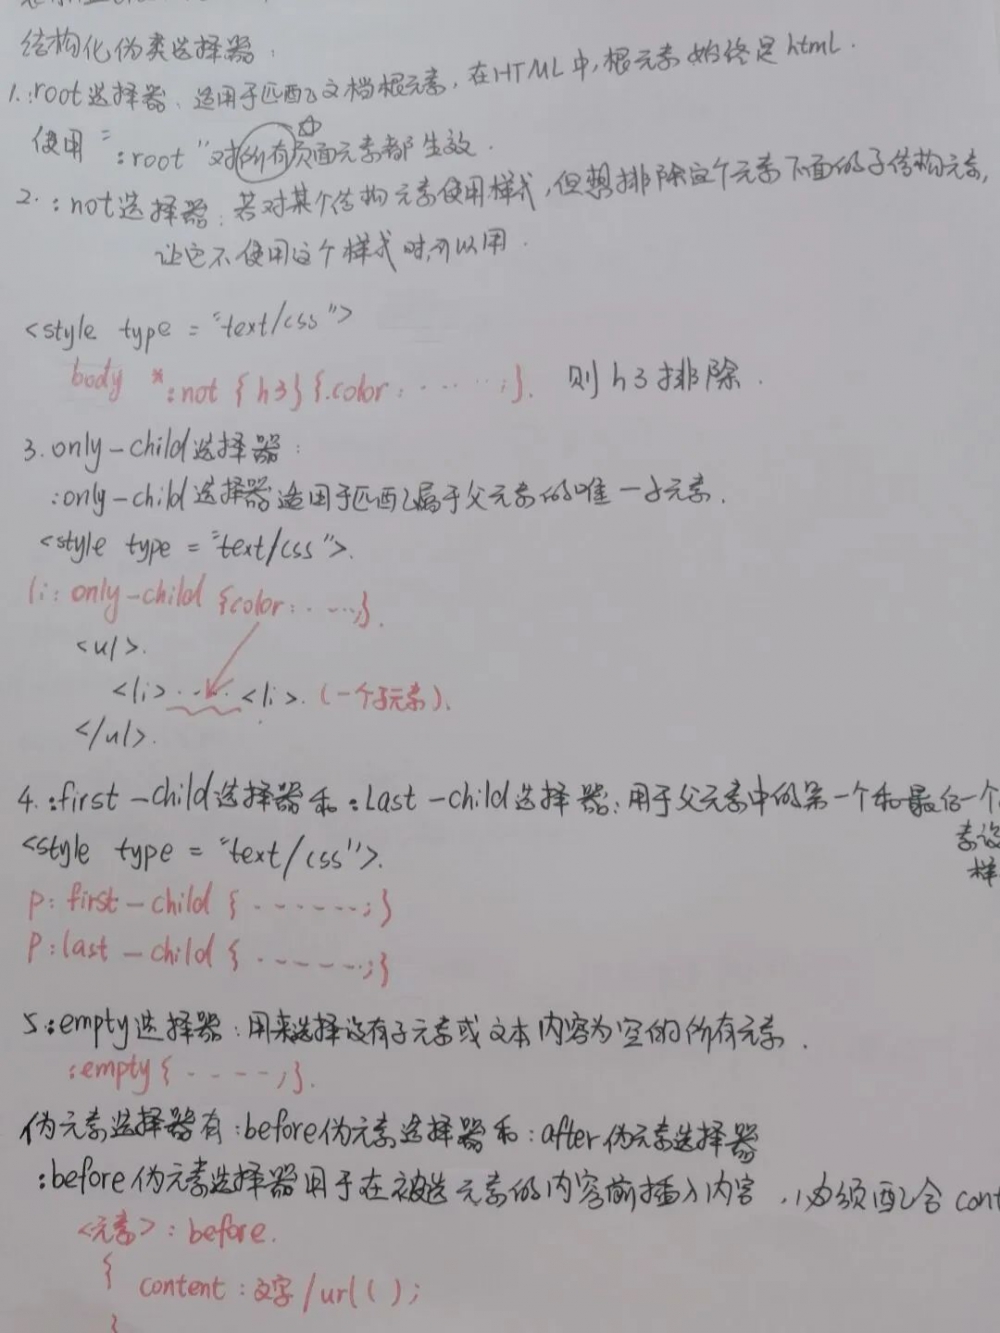 结构化伪类选择器:
1.:root选择器、适用于匹配文档根元素,在HTML中,根元素始终是html.
使用":root"对所有页面元素都生效.
2.:not选择器:若对某个结构元素使用样式,但想排除这个元素下面的子结构元素,
让它不使用这个样式时,可以用.
<style type="text/css">
body *:not {h3}{.color:······;}. 则h3排除.
3.only-child选择器:
:only-child选择器适用于匹配属于父元素的唯一子元素.
<style type="text/css">.
li:only-child {color:·····;}.
<ul>.
<li>·····<li>.(一个子元素).
</ul>.
4.:first-child选择器和:last-child选择器:用于父元素中的第一个和最后一个
素设
样
<style type="text/css">.
p:first-child {·······;}
P:last-child {·······;}
5.:empty选择器:用来选择没有子元素或文本内容为空的所有元素.
:empty{·····;}.
伪元素选择器有:before伪元素选择器和:after伪元素选择器
:before伪元素选择器用于在被选元素的内容前插入内容,必须配合cont
<元素>:before.
{
content:文字/url();
}